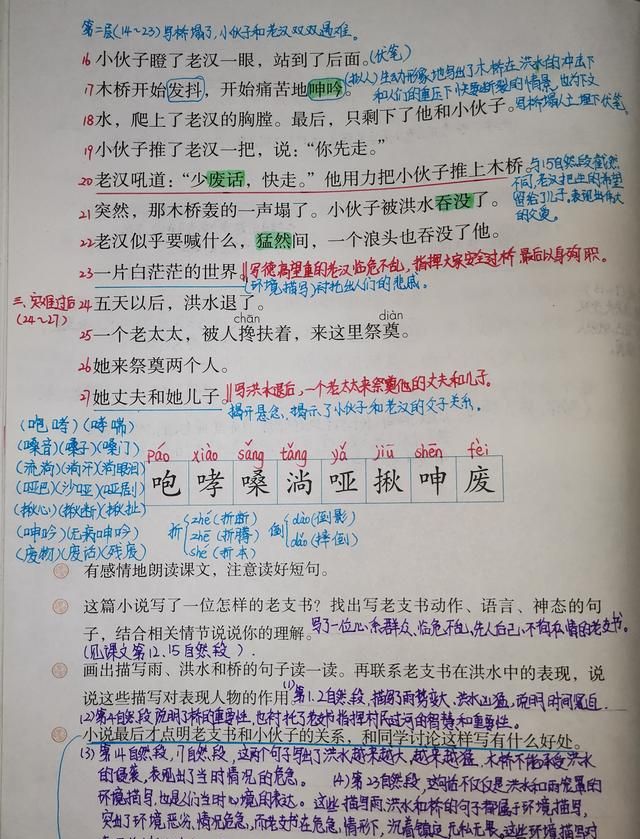 第二层(14~23)写桥塌了,小伙子和老汉双双遇难。
16 小伙子瞪了老汉一眼，站到了后面。(伏笔)
17 木桥开始发抖，开始痛苦地呻吟。(拟人)生动形象地写出了木桥在洪水的冲击下
和人们的重压下快要断裂的情景,也为下文
写桥塌人亡埋下伏笔。
18 水，爬上了老汉的胸膛。最后，只剩下了他和小伙子。
19 小伙子推了老汉一把，说：“你先走。”
20 老汉吼道：“少废话，快走。”他用力把小伙子推上木桥。
与15自然段截然
不同,老汉把生的希望
留给了儿子,表现出伟大
的父爱。
21 突然，那木桥轰的一声塌了。小伙子被洪水吞没了。
22 老汉似乎要喊什么，猛然间，一个浪头也吞没了他。
23 一片白茫茫的世界。写德高望重的老汉临危不乱,指挥大家安全过桥,最后以身殉职。
(环境描写)衬托出人们的悲戚。
三、灾难过后
(24~27)
24 五天以后，洪水退了。
chān diàn
25 一个老太太，被人搀扶着，来这里祭奠。
26 她来祭奠两个人。
27 她丈夫和她儿子。写洪水退后,一个老太太来祭奠他的丈夫和儿子。
揭开悬念,揭示了小伙子和老汉的父子关系。
(咆哮)(哮喘)
(嗓音)(嗓子)(嗓门)
(流淌)(淌汗)(淌眼泪)
(哑巴)(沙哑)(哑剧)
(揪心)(揪断)(揪扯)
(呻吟)(无病呻吟)
(废物)(废话)(残废)
páo xiào sǎng tǎng yǎ jiū shēn fèi
咆 哮 嗓 淌 哑 揪 呻 废
折 zhé(折断)
zhē(折腾)
shé(折本)
倒 dào(倒影)
dǎo(摔倒)
有感情地朗读课文，注意读好短句。
这篇小说写了一位怎样的老支书？找出写老支书动作、语言、神态的句
子，结合相关情节说说你的理解。写一位心系群众、临危不乱,先人后己,不徇私情的老支书。
(见课文第12、15自然段)
画出描写雨、洪水和桥的句子读一读。再联系老支书在洪水中的表现，说
说这些描写对表现人物的作用。(1)第1、2自然段,描写了雨势变大、洪水凶猛,说明时间紧迫。
(2)第4自然段说明了桥的重要性,也衬托了老支书指挥村民过河的智慧和重要性。
小说最后才点明老支书和小伙子的关系，和同学讨论这样写有什么好处。
(3)第14自然段,17自然段,这两个句子写出了洪水越来越大,越来越猛,木桥不能承受洪水
的侵袭,表现出了当时情况的危急。(4)第23自然段,这句话不仅仅是洪水和雨笼罩的
环境描写,也是人们当时心境的表达。这些描写雨、洪水和桥的句子都属于环境描写,
突出了环境恶劣,情况危急,而老支书在危急情形下,沉着镇定,无私无畏。这些环境描写对